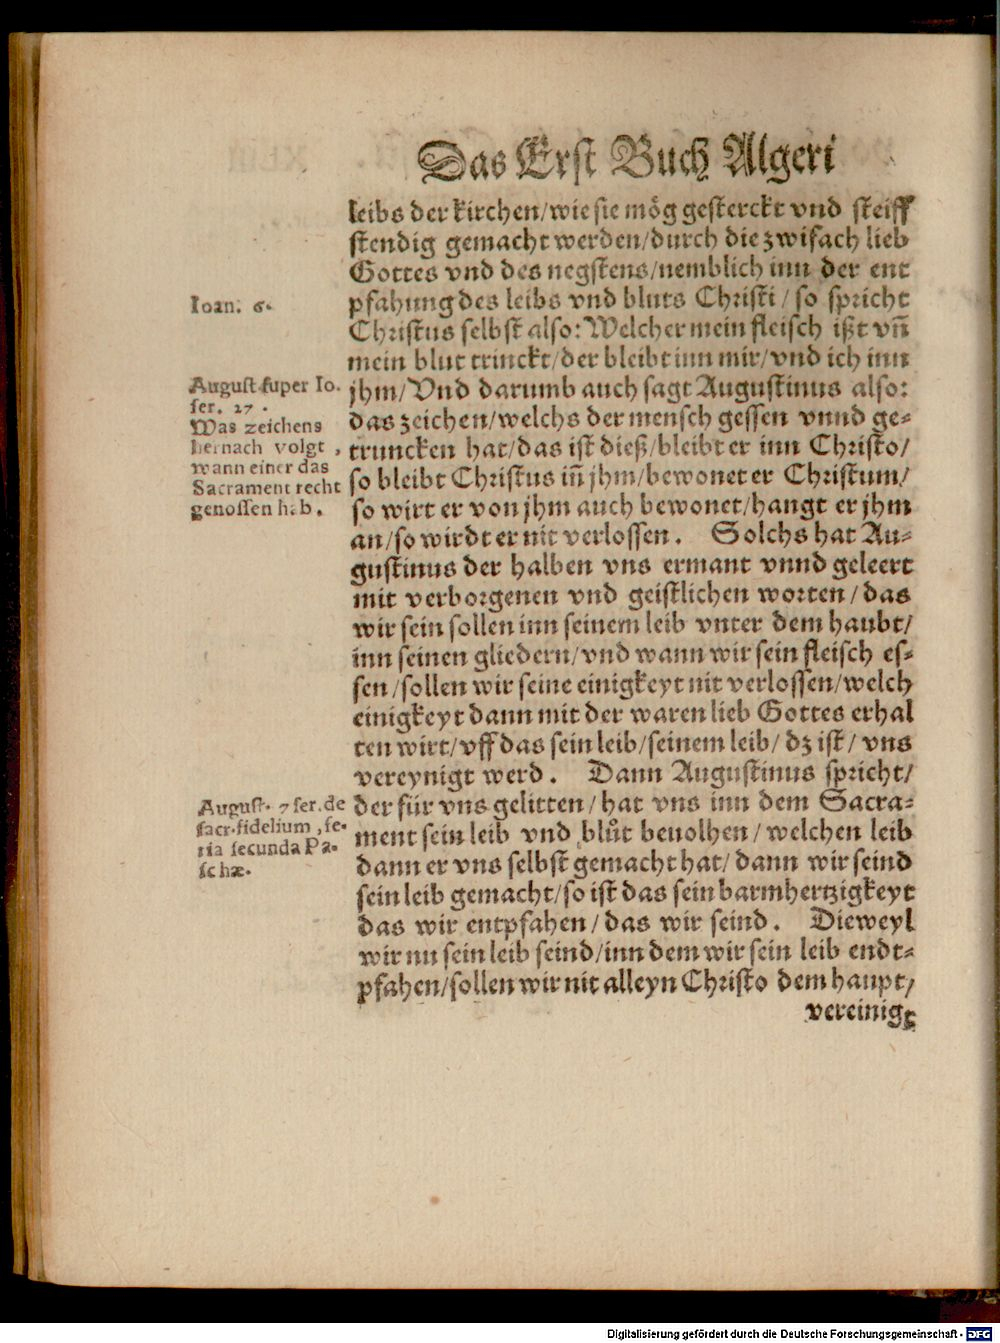 Das Erst Buch Algeri
leibs der kirchen/wie sie mög gesterckt vnd steiff
stendig gemacht werden/durch die zwifach lieb
Gottes vnd des negstens/nemblich inn der ent
Ioan. 6.
pfahung des leibs vnd bluts Christi/so spricht
Christus selbst also: Welcher mein fleisch ißt vn̄
mein blut trinckt/der bleibt inn mir/vnd ich inn
August. super Io.
ser. 27.
Was zeichens
hernach volgt,
wann einer das
Sacrament recht
genossen hab.
jhm/Vnd darumb auch sagt Augustinus also:
das zeichen/welchs der mensch gessen vnnd ge-
truncken hat/das ist dieß/bleibt er inn Christo/
so bleibt Christus in̄ jhm/bewonet er Christum/
so wirt er von jhm auch bewonet/hangt er jhm
an/so wirdt er nit verlossen. Solchs hat Au-
gustinus der halben vns ermant vnnd geleert
mit verborgenen vnd geistlichen worten/das
wir sein sollen inn seinem leib vnter dem haubt/
inn seinen gliedern/vnd wann wir sein fleisch es-
sen/sollen wir seine einigkeyt nit verlossen/welch
einigkeyt dann mit der waren lieb Gottes erhal
ten wirt/vff das sein leib/seinem leib/dz ist/vns
vereynigt werd. Dann Augustinus spricht/
August. 7 ser. de
sacr. fidelium, fe-
ria secunda Pa-
schæ.
der für vns gelitten/hat vns inn dem Sacra-
ment sein leib vnd blůt beuolhen/welchen leib
dann er vns selbst gemacht hat/dann wir seind
sein leib gemacht/so ist das sein barmhertzigkeyt
das wir entpfahen/das wir seind. Dieweyl
wir nu sein leib seind/inn dem wir sein leib endt-
pfahen/sollen wir nit alleyn Christo dem haupt/
vereinigt
Digitalisierung gefördert durch die Deutsche Forschungsgemeinschaft - DFG